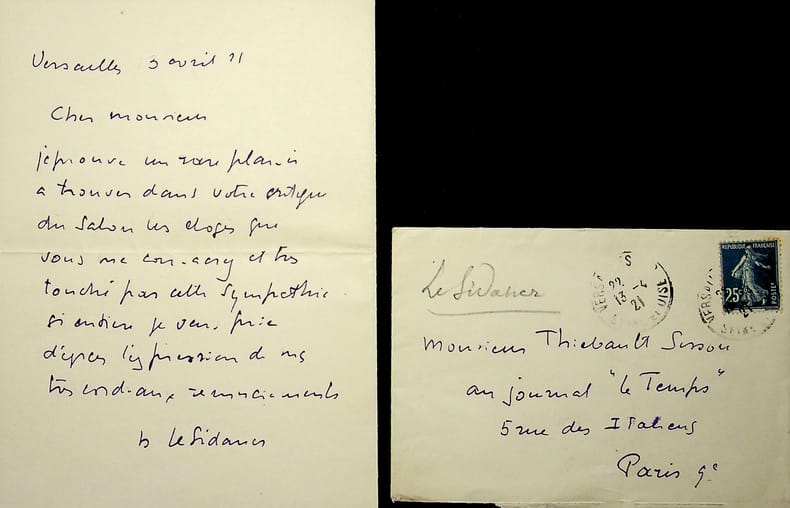 Versailles 3 avril 21
Cher monsieur
j'éprouve un rare plaisir
a trouver dans votre critique
du Salon les eloges que
vous me consacrez et très
touché par cette sympathie
si entiere je vous prie
d'agreer l'expression de mes
très cordiaux remerciements
h Le Sidaner
Le Sidaner
VERSAILLES
22
13 -4
21
SEINE ET OISE
REPUBLIQUE FRANÇAISE
25c
POSTES
Monsieur Thiebault Sisson
au journal "le Temps"
5 rue des Italiens
Paris 9e